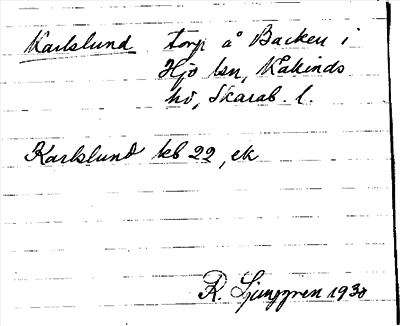 Karlslund torp å Backen i
Hjo lsn, Kåkinds
hd, Skarab. l.
Karlslund kb 22, ek
R. Ljunggren 1930